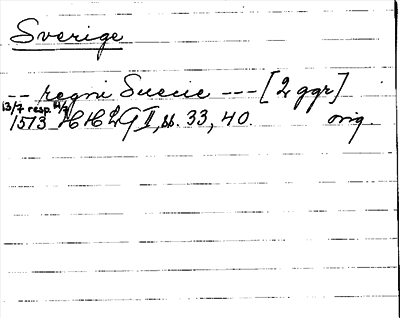 Sverige
-- regni Suecie --- [2 ggr]
13/7 resp. 14/7
1513 HH 2 G II, ss. 33, 40. orig.